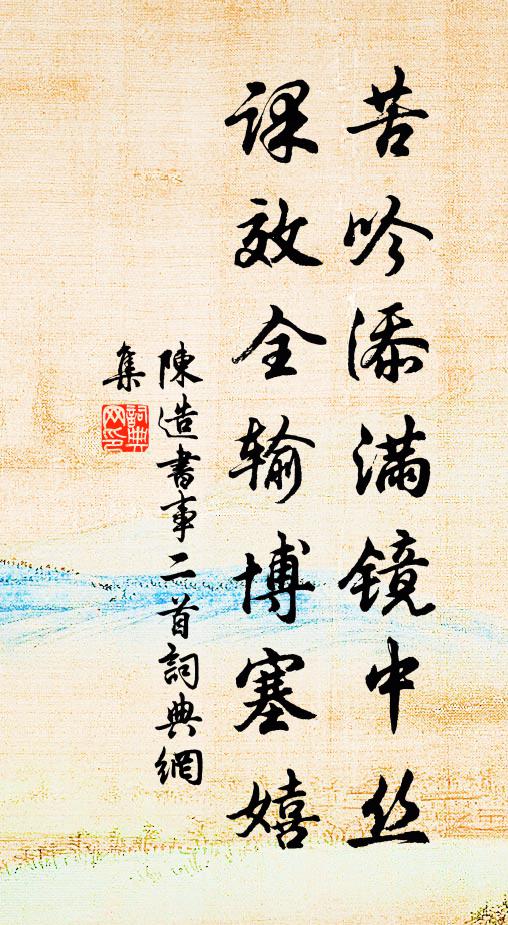 苦吟添满镜中丝
课效全输博塞嬉
陳造書事二首詞典網
集
詞典
网印